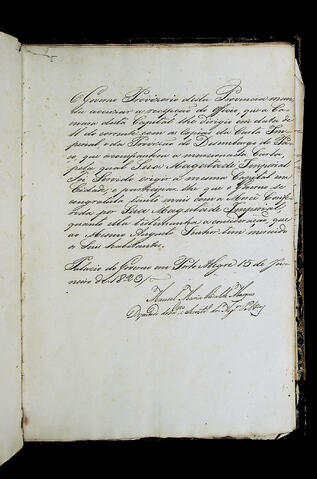 O Governo Provizorio desta Provincia man
da accuzar a recepção do Officio, que a Ca
mara desta Capital lhe dirigio em data de
11 do corrente com as Copias da Carta Im
perial e da Provizão do Desembargo do Pa
ço que acompanhou a mencionada Carta
pela qual Sua Magestade Imperial
foi Servido erigir a mesma Capital em
Cidade, e participar lhe que o Governo se
congratula tanto mais com a Mercê Confe
rida por Sua Magestade Imperial,
quanto ella testemunha a consideração que
ao Mesmo Augusto Senhor tem merecido
os Seus habitantes.
Palacio do Governo em Porto Alegre 15 de Ja
neiro de 1823
Manoel Maria
Deputado